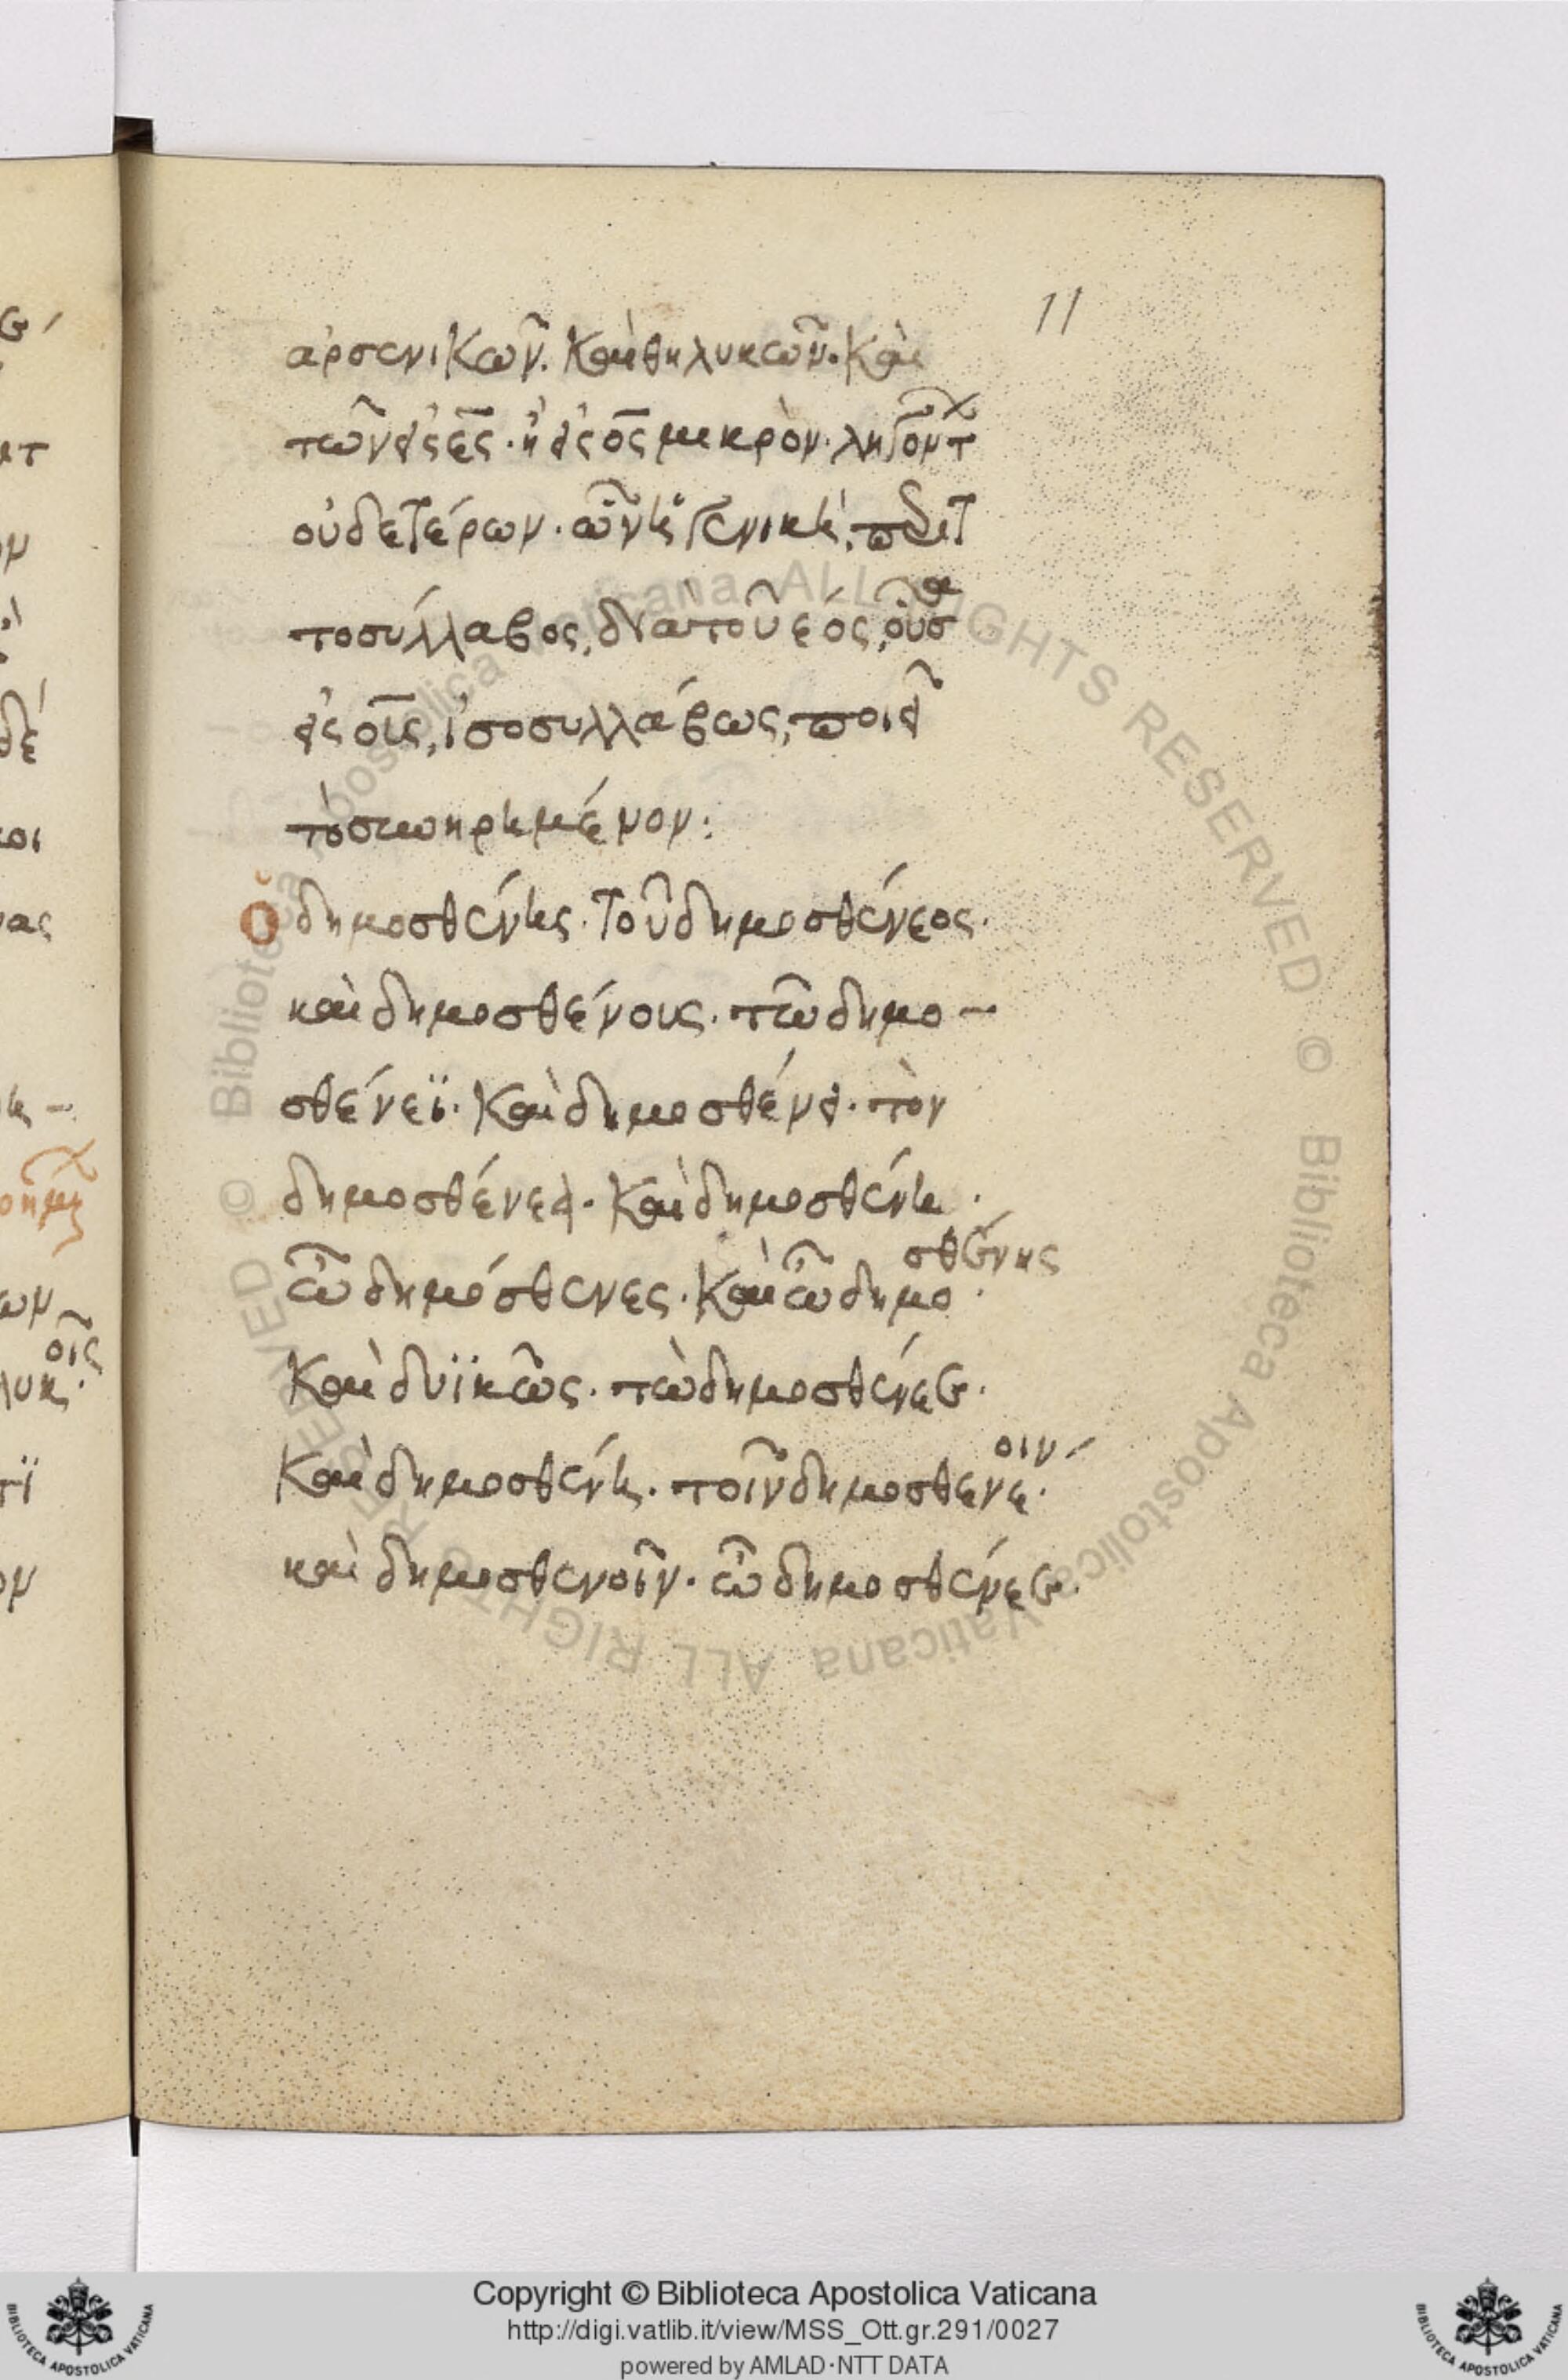 11
ἀρσενικῶν. καὶ θηλυκῶν. καὶ
τῶν εἰς ες. ἢ εἰς ος μικρὸν. ληγοντ
οὐδετέρων. ὧν ἡ γενικὴ, περιτ
τοσύλλαβος, διὰ τοῦ εός, οὖσα
εἰς οις, ἰσοσυλλάβως, ποιεῖ
τὸ συνηρημένον:
Ὁ δημοσθένης. τοῦ δημοσθένεος.
καὶ δημοσθένους. τῶ δημο-
σθένεϊ. καὶ δημοσθένει. τὸν
δημοσθένεα. καὶ δημοσθένη.
ὦ δημόσθενες. καὶ ὦ δημοσθένης.
καὶ δυϊκῶς. τὼ δημοσθένεε.
καὶ δημοσθένη. τοῖν δημοσθενέοιν.
καὶ δημοσθενοῖν. ὦ δημοσθένεε.
Copyright © Biblioteca Apostolica Vaticana
http://digi.vatlib.it/view/MSS_Ott.gr.291/0027
powered by AMLAD·NTT DATA